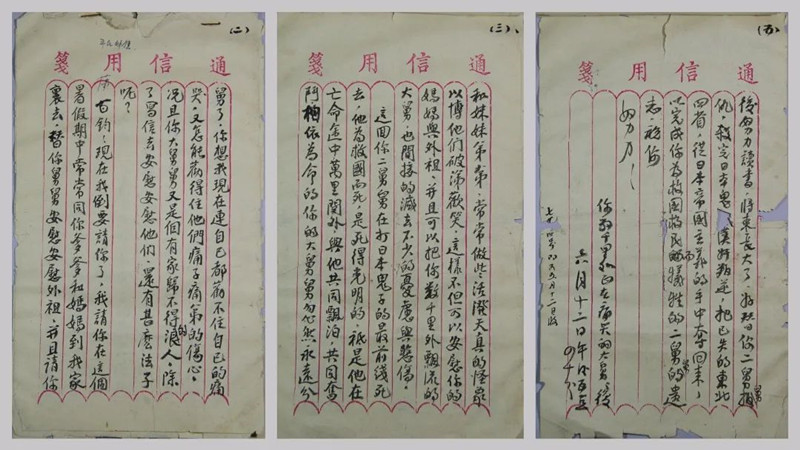 (二)
通信用箋
舅了,你想我現在連自己都薪不住自己的痛
哭,又怎能勸得住他們痛子痛弟的傷心,
況且你大舅舅又是個有家歸不得的浪人,除
了寫信去安慰安慰他們,還有甚麼法子
呢?
百鈞:現在我倒要請你了,我請你在這個
暑假期中常常同你爹爹和媽媽到我家
裏去,替你舅舅安慰安慰外祖,并且請你
(三)
通信用箋
和妹妹弟弟,常常做些活潑天真的怪象
以博他們破涕歡笑,這樣不但可以安慰你的
媽媽與外祖,并且可以把你數千里外飄流的
大舅也間接的減去不少的憂慮與悲傷。
這回你二舅舅在打日本鬼子的最前綫死
去,他為救國而死,是死得光明的,祗是他在
亡命途中萬里關外與他共同飄泊,共同奮
鬥,相依為命的你的大舅舅忽然永遠分
(五)
通信用箋
後努力讀書,將來長大了,好替你二舅舅報
仇,殺完日本鬼子漢奸叛逆,把已失的東北
四省,從日本帝國主義的手中奪回來,
以完成你為救國救民而犧牲的二舅舅的遺
志,祝你
努力!
你數千里外正在痛哭的大舅舅
六月十二日午